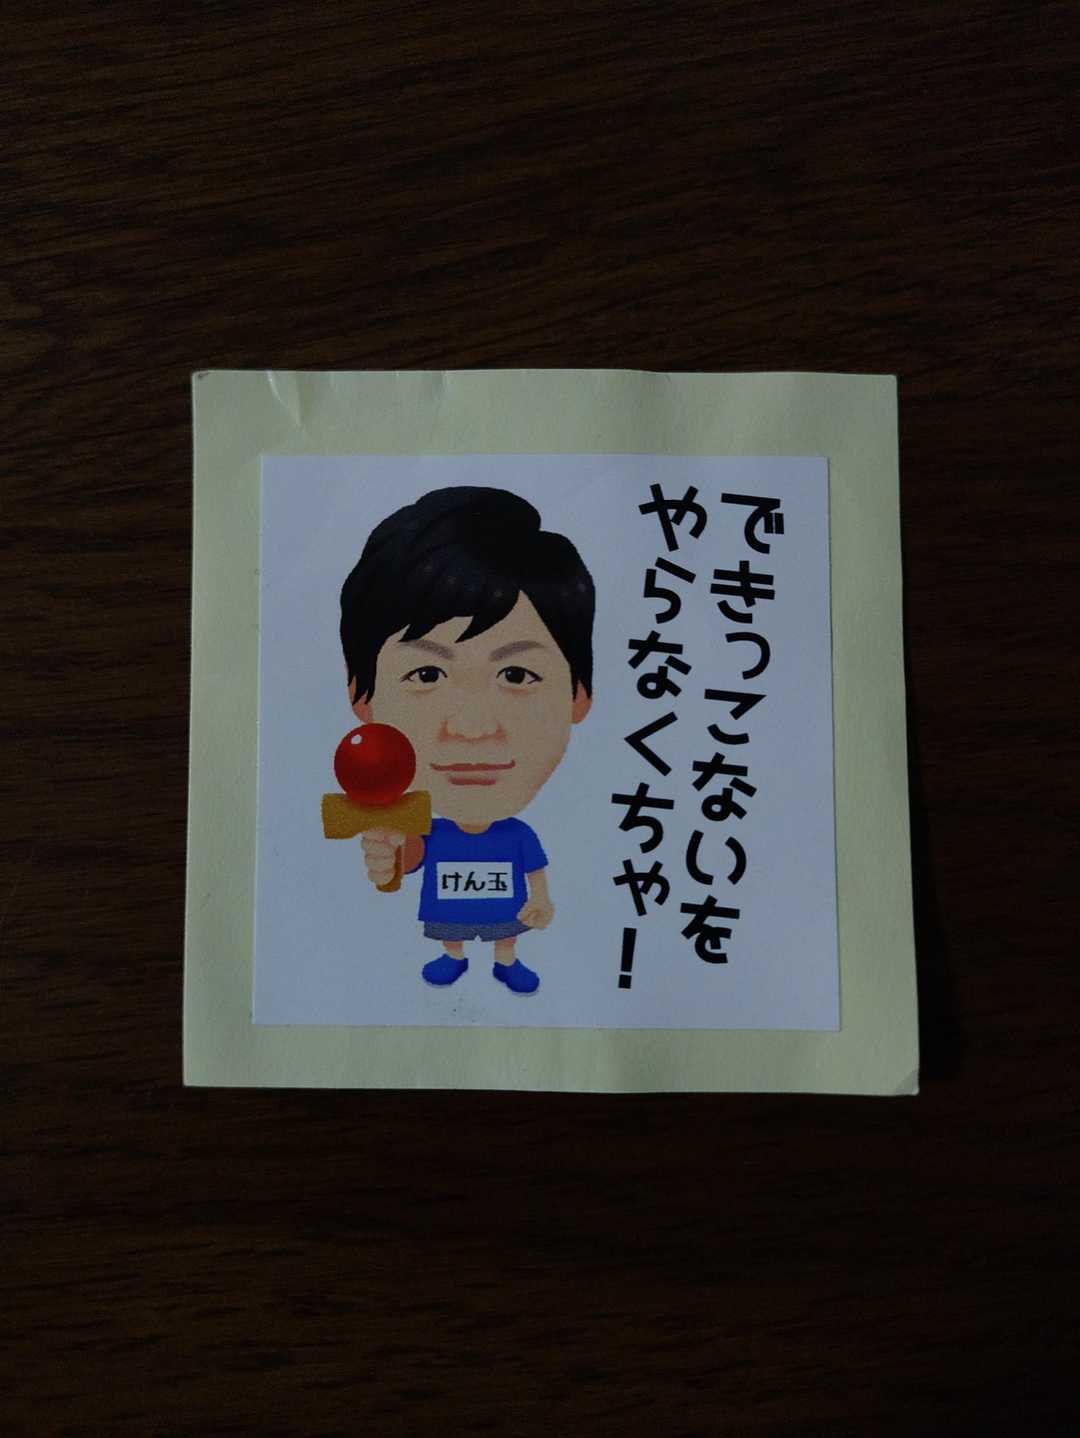 できっこないを
やらなくちゃ!
けん玉